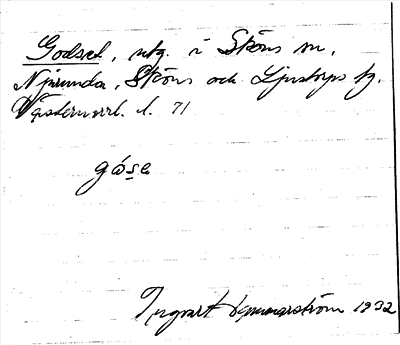 Godset, utg. i Sköns sn,
Njurunda, Sköns och Ljustorps tg.
Västernorrl. l. 71
gósę
Ingvart Hammarström 1932